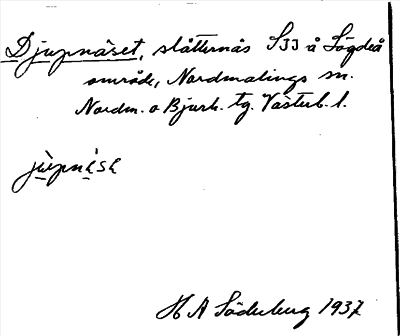 Djupnäset, slåtternäs S33 å Lögdeå
område, Nordmalings sn.
Nordm. o Bjurh. tg. Västerb. l.
H A Söderberg 1937